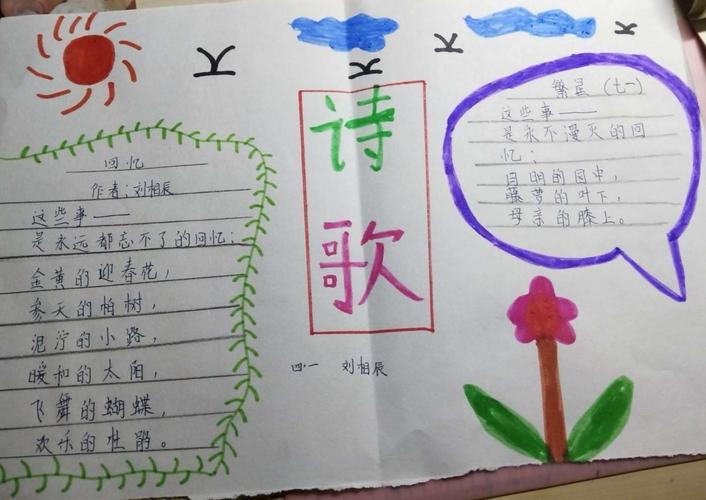 回忆
作者:刘相辰
这些事——
是永远都忘不了的回忆:
金黄的迎春花,
参天的怕树,
泥泞的小路,
暖和的太阳,
飞舞的蝴蝶,
欢乐的
诗
歌
四.一 刘相辰
繁星(七一)
这些事——
是永不漫灭的回
忆:
月明的园中,
藤萝的叶下,
母亲的膝上。